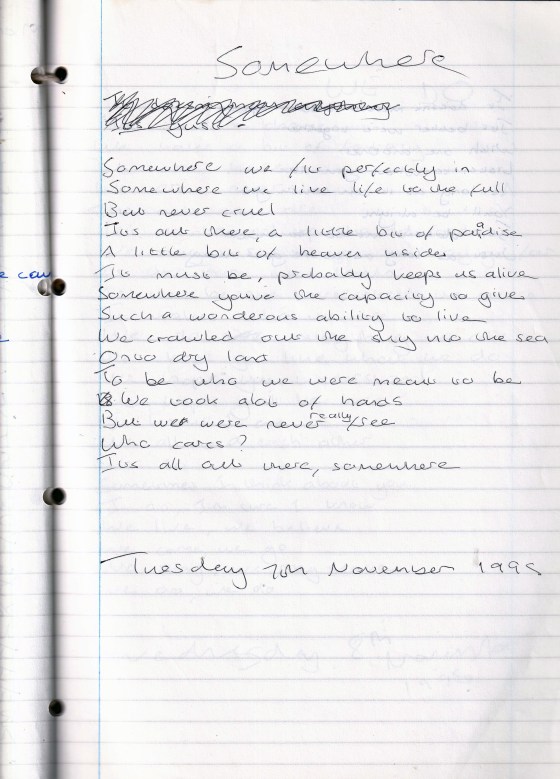 Somewhere
Somewhere we fit perfectly in
Somewhere we live life to the full
But never cruel
Its out there, a little bit of paradise
A little bit of heaven inside
It must be, probably keeps us alive
Somewhere youve the capacity to give
Such a wonderous ability to live
We crawled out the sky into the sea
Onto dry land
To be who we were meant to be
We took alot of hands
But we were never really see
Who cares?
Its all out there, somewhere
Tuesday 7th November 1995